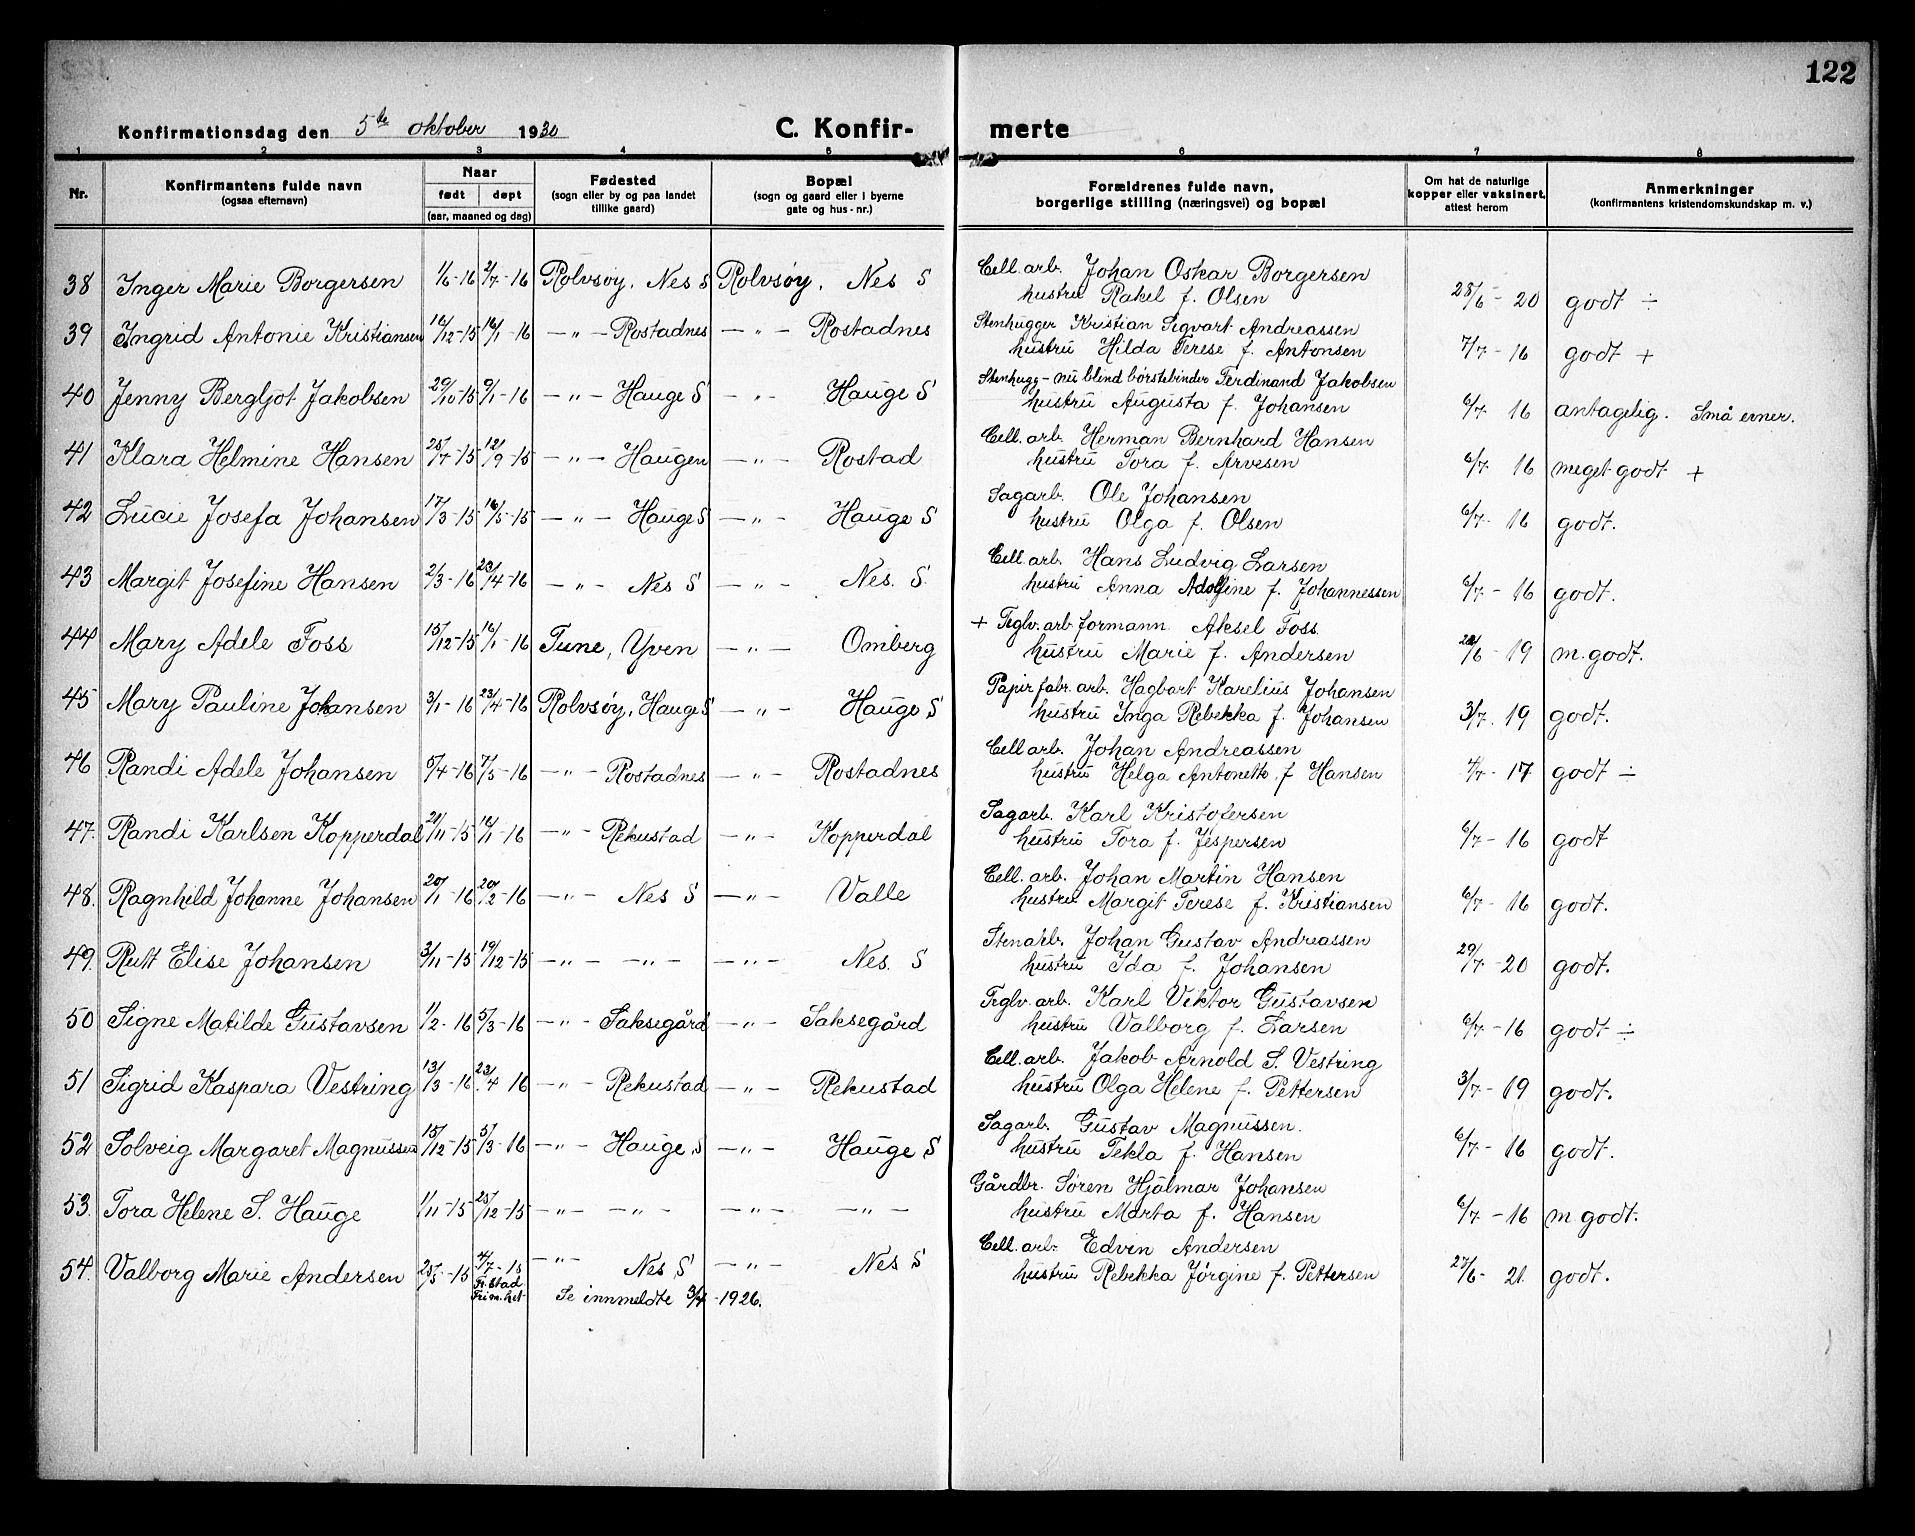 122
Konfirmationsdag den 5te oktober 1930
C. Konfir-merte
1 2 3 4 5 6 7 8
Nr. | Konfirmantens fulde navn (ogsaa efternavn) | Naar født døpt (aar, maaned og dag) | Fødested (sogn eller by og paa landet tillike gaard) | Bopæl (sogn og gaard eller i byerne gate og hus-nr.) | Forældrenes fulde navn, borgerlige stilling (næringsvei) og bopæl | Om hat de naturlige kopper eller vaksinert, attest herom | Anmerkninger (konfirmantens kristendomskundskap m. v.)
38 Inger Marie Borgersen 1/6-16 2/7-16 Rolvsøy, Nes S Rolvsøy, Nes S Cell. arb. Johan Oskar Borgersen
hustru Rakel f. Olsen 28/6-20 godt ÷
39 Ingrid Antonie Kristiansen 16/12-15 16/1-16 —"— Rostadnes —"— Rostadnes Stenhugger Kristian Sigvart Andreassen
hustru Hilda Terese f. Antonsen 7/7-16 godt +
40 Jenny Bergljot Jakobsen 29/10-15 9/1-16 —"— Hauge S —"— Hauge S Stenhugg - nu blind børstebinder Ferdinand Jakobsen
hustru Augusta f. Johansen 6/7 16 antagelig. Små evner.
41 Klara Helmine Hansen 25/7-15 12/9-15 —"— Haugen —"— Rostad Cell. arb. Herman Bernhard Hansen
hustru Tora f. Arvesen 6/7 16 meget godt +
42 Lucie Josefa Johansen 17/3-15 16/5-15 —"— Hauge S —"— Hauge S Sagarb. Ole Johansen
hustru Olga f. Olsen 6/7- 16 godt.
43 Margit Josefine Hansen 2/3-16 23/4-16 —"— Nes S —"— Nes. S. Cell arb. Hans Ludvig Larsen
hustru Anna Adolfine f. Johannessen 6/7-16 godt.
44 Mary Adele Foss 15/12-15 16/1-16 Tune, Yven —"— Omberg + Teglv. arb. formann Aksel Foss.
hustru Marie f. Andersen 28/6-19 m. godt.
45 Mary Pauline Johansen 3/1-16 23/4-16 Rolvsøy, Hauge S —"— Hauge S Papirfabr. arb. Hagbart Karelius Johansen
hustru Inga Rebekka f. Johansen 3/7. 19 godt.
46 Randi Adele Johansen 5/4-16 7/5-16 —"— Rostadnes —"— Rostadnes Cell arb. Johan Andreassen
hustru Helga Antonette f Hansen 4/7-17 godt ÷
47. Randi Karlsen Kopperdal 21/11-15 16/1-16 —"— Rekustad —"— Kopperdal Sagarb. Karl Kristofersen
hustru Tora f. Jespersen 6/7-16 godt
48. Ragnhild Johanne Johansen 20/1-16 20/2-16 —"— Nes S —"— Valle Cell. arb. Johan Martin Hansen
hustru Margit Terese f. Kristiansen 6/7-16 godt.
49. Rutt Elise Johansen 3/11-15 19/12-15 —"— —"— —"— Nes. S Stenarb. Johan Gustav Andreassen
hustru Ida f. Johansen 29/7-20 godt.
50 Signe Matilde Gustavsen 1/2-16 5/3-16 —"— Saksegård —"— Saksegård Teglv. arb. Karl Viktor Gustavsen
hustru Valborg f. Larsen 6/7-16 godt ÷
51 Sigrid Kaspara Vestring 13/3-16 23/4 16 —"— Rekustad —"— Rekustad Cell. arb. Jakob Arnold S. Vestring
hustru Olga Helene f. Pettersen 3/7-19 godt.
52 Solveig Margaret Magnussen 15/12-15 5/3-16 —"— Hauge S —"— Hauge S Sagarb. Gustav Magnussen.
hustru Tekla f. Hansen 6/7-16 godt.
53. Tora Helene S. Hauge 1/11-15 25/12-15 —"— —"— —"— —"— Gårdbr. Søren Hjalmar Johansen
hustru Marta f. Hansen 6/7-16 m godt.
54. Valborg Marie Andersen 25/5-15 4/7-15 —"— Nes S —"— Nes S Cell. arb. Edvin Andersen
Fr.stad
Frim.het Se innmeldte 3/4-1926. hustru Rebekka Jørgine f. Pettersen 27/6- 21. godt.